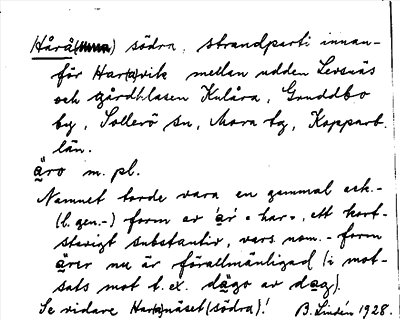 Hårå(), södra, strandparti innan-
för Har(a)vik mellan udden Levsnäs
och gårdklasen Kulåra, Gruddbo
by, Sollerö sn, Mora bg, Kopparb.
län.
äro m. pl.
Namnet torde vara en gammal ack.-
(l. gen.-) form av a̱r' «har», ett kort-
stavigt substantiv, vars nom.-form
ärer nu är förallmänligad (i mot-
sats mot t.ex. dägo av dag).
Se vidare Har(a)näset (södra)! B. Lindén 1928.